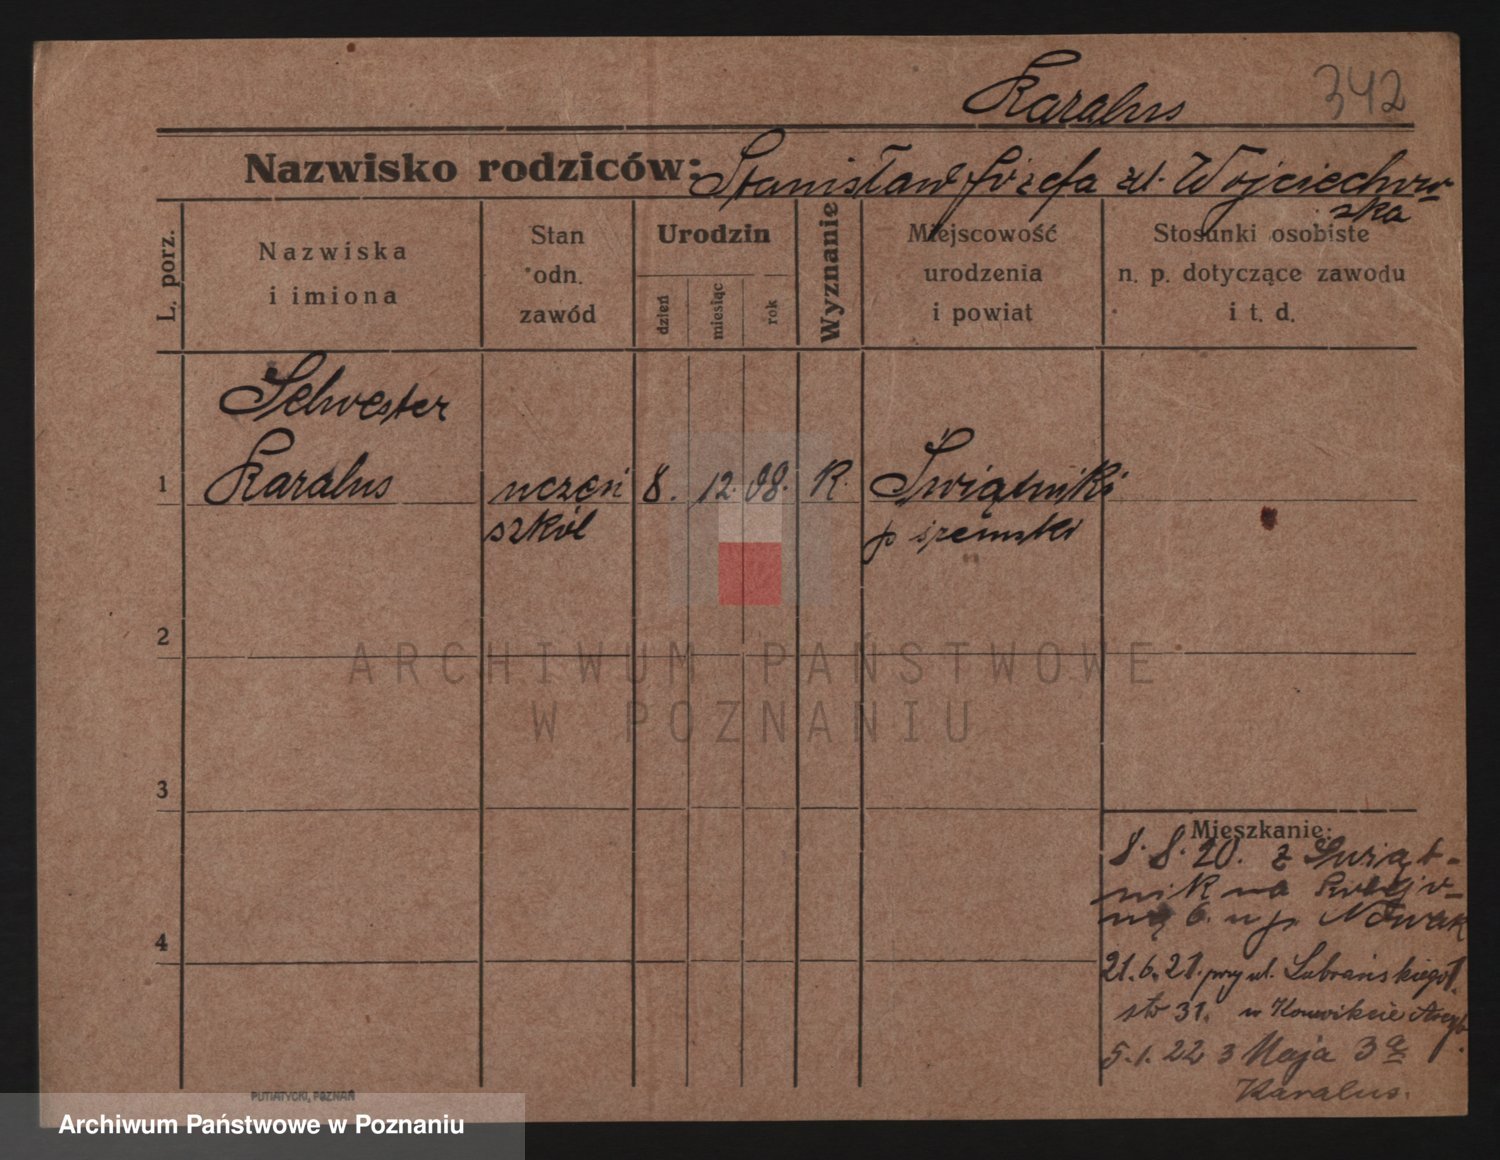 Karalus 342
Nazwisko rodziców: Stanisław Józefa zd. Wojciechow-
ska
L. porz.
Nazwiska
i imiona
Stan
odn.
zawód
Urodzin
dzień
miesiąc
rok
Wyznanie
Miejscowość
urodzenia
i powiat
Stosunki osobiste
n. p. dotyczące zawodu
i t. d.
Selwester
1 Karalus uczeń 8. 12. 08. R. Świątniki
szkół p śremski
2
3
4
Mieszkanie:
8. 8. 20. z Świąt-
nik na
6. u p. Nowak
21.6.21. przy ul. Lubrańskiego 1.
31. w Konwikcie
5.1.22 3 Maja 3a
Karalus.
PUTIATYCKI, POZNAŃ
ARCHIWUM PAŃSTWOWE
W POZNANIU
Archiwum Państwowe w Poznaniu